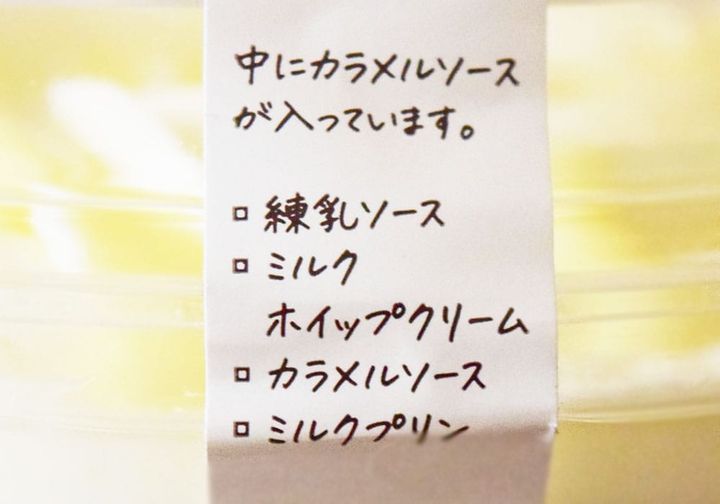 中にカラメルソース
が入っています。
□ 練乳ソース
□ ミルク
ホイップクリーム
□ カラメルソース
□ ミルクプリン